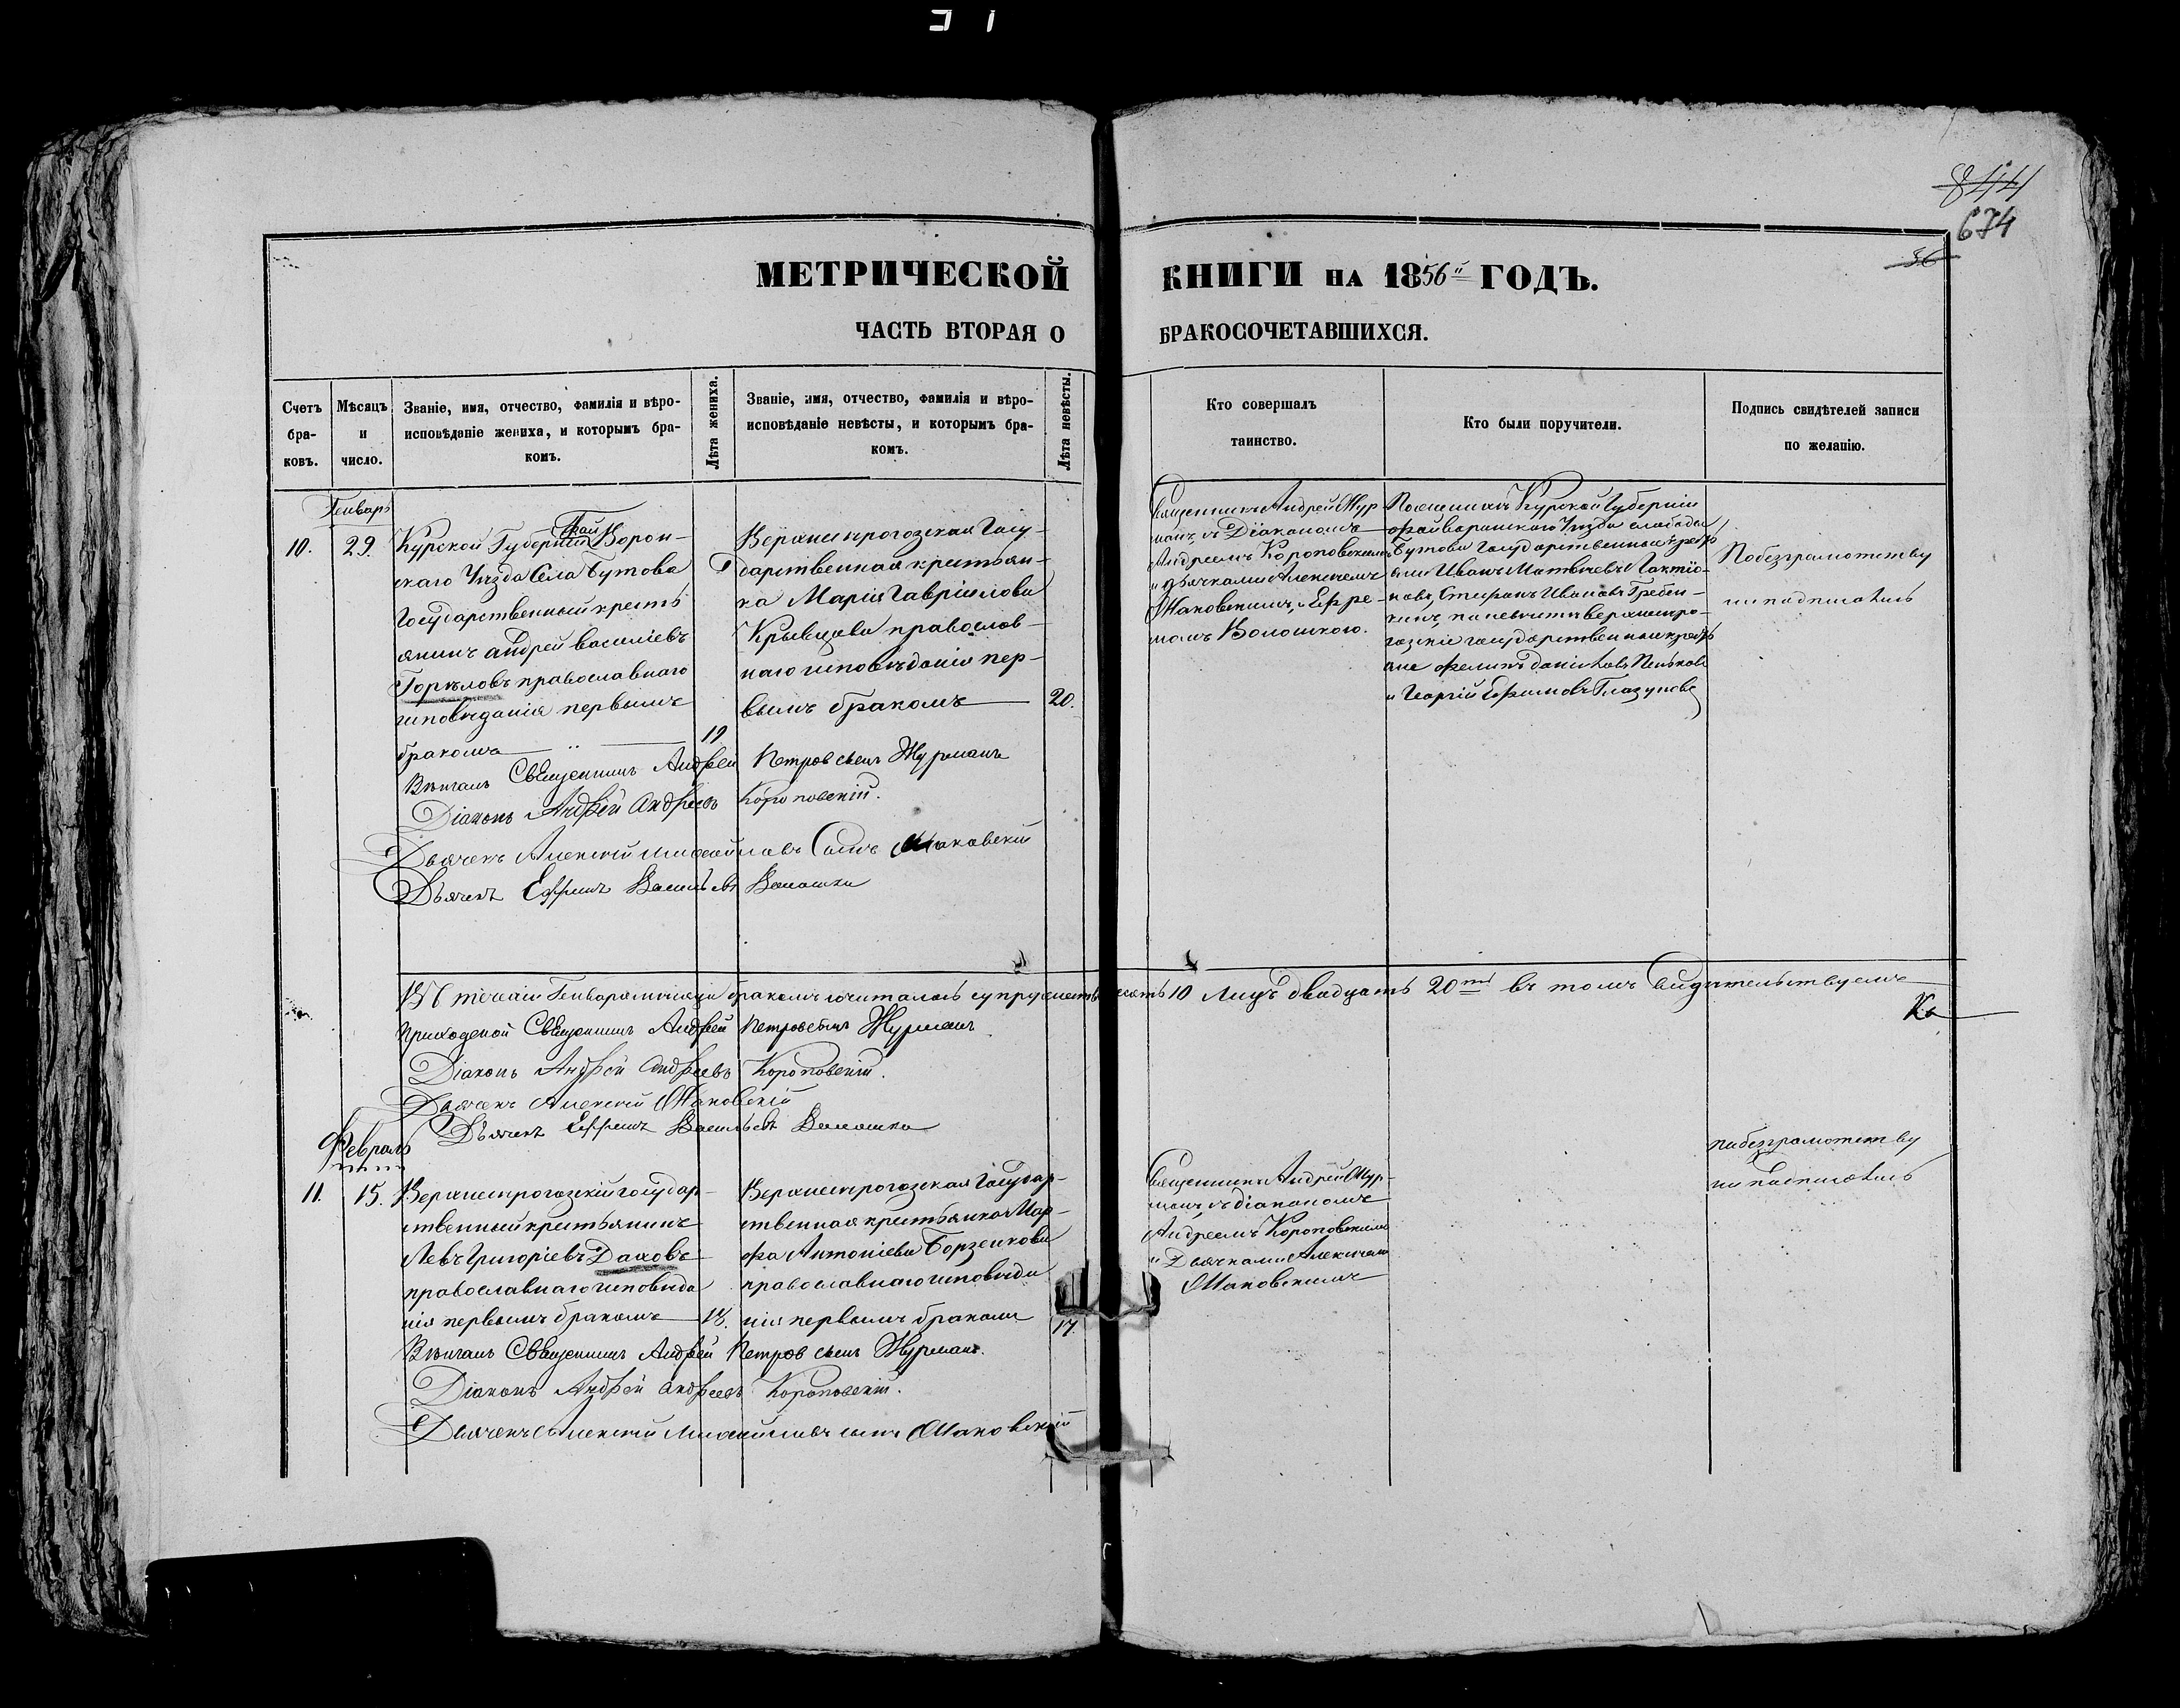 844
674
56
МЕТРИЧЕСКОЙ КНИГИ НА 1856й ГОДЪ.
ЧАСТЬ ВТОРАЯ О БРАКОСОЧЕТАВШИХСЯ.
Счетъ бра-
ковъ.
Мѣсяцъ
и
число.
Званіе, имя, отчество, фамилія и вѣро-
исповѣданіе жениха, и которымъ бра-
комъ.
Лѣта жениха.
Званіе, имя, отчество, фамилія и вѣро-
исповѣданіе невѣсты, и которымъ бра-
комъ.
Лѣта невѣсты.
Кто совершалъ
таинство.
Кто были поручители.
Подпись свидѣтелей записи
по желанію.
Генварь
10.
29.
Грай
Курской Губерніи Ворон-
скаго Уѣзда Села Бутова
Государственный кресть
янинъ Андрей Василіевъ
Горѣловъ православнаго
исповѣданія первымъ
бракомъ
19
Верхнерогозская Госу-
дарственная крестьян-
ка Марія Гавріилова
Кривцова православ-
наго исповѣданія пер-
вымъ бракомъ
20.
Священникъ Андрей Жур-
манъ, съ Діакономъ
Андреемъ Короповскимъ
и дьячками Алексѣемъ
Маковскимъ, Ефре-
момъ Волошкою.
Курской Губерніи
Грайворонскаго Уѣзда слободы
Бутова Государственные кресть
яне Иванъ Матвѣевъ Лактіо-
новъ, Стефанъ Ивановъ Гребен-
кинъ, по невѣстѣ верхнерого-
гозскіе государственные кресть
яне Филипъ Даніиловъ Пеньковъ
и Георгій Ефимовъ Глазуновъ
По безграмотству
не подписались
Вѣнчалъ Священникъ Андрей Петровъ сынъ Журманъ
Діаконъ Андрей Андреевъ Короповскій.
Дьячекъ Алексѣй Михайловъ Сынъ Маковскій
Дьячекъ Ефремъ Васильевъ Волошка
Въ теченіи Генваря мѣсяца бракомъ сочиталось супружествъ десять 10 лицъ двадцать 20ть въ томъ свидѣтельствуемъ
Приходской Священникъ Андрей Петровъ сынъ Журманъ
Ко
Діаконъ Андрей Андреевъ Короповскій.
Дьячекъ Алексѣй Маковскій
Дьячекъ Ефремъ Васильевъ Волошка
Февраль
11.
15.
Верхнерогозскій государ-
ственный крестьянинъ
Левъ Григоріевъ Даховъ
православнаго исповѣда
нія первымъ бракомъ
18.
Верхнерогозская Государ-
ственная крестьянка Мар-
фа Антоніева Борзенкова
православнаго исповѣда
нія первымъ бракомъ
17.
Священникъ Андрей Жур-
манъ, съ діакономъ
Андреемъ Короповскимъ
и Дьячками Алексѣемъ
Маковскимъ
по безграмотству
не подписались
Вѣнчалъ Священникъ Андрей Петровъ сынъ Журманъ.
Діаконъ Андрей Андреевъ Короповскій.
Дьячекъ Алексѣй Михайловъ сынъ Маковскій